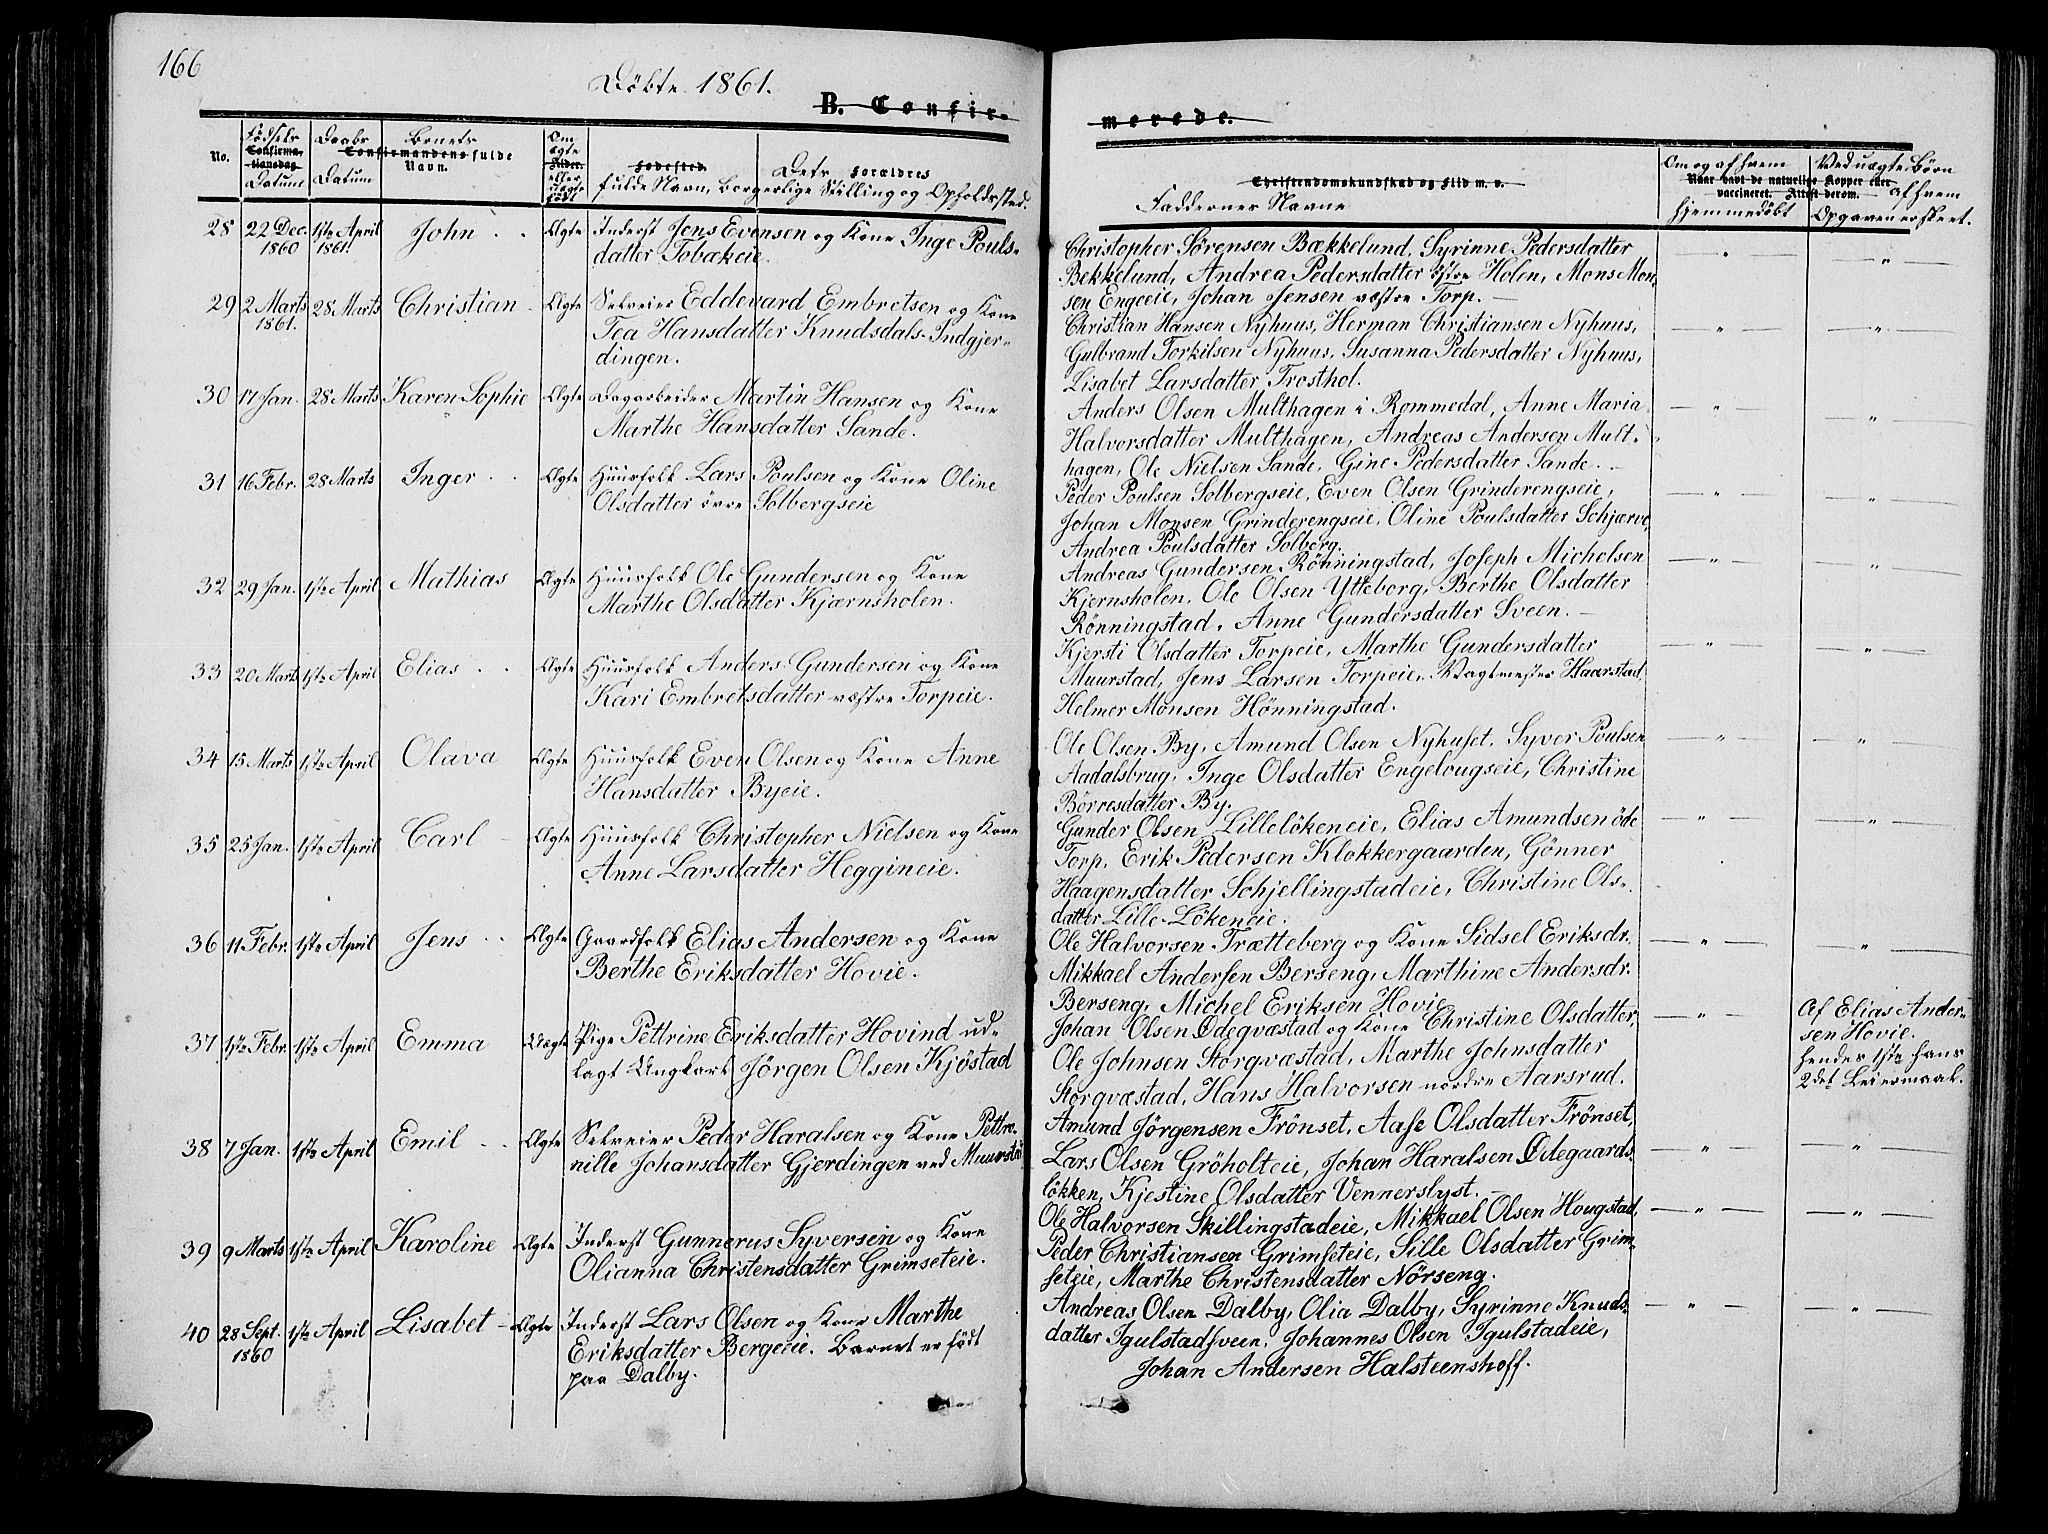 166
Döbte 1861.
B. Confir-
merede.
No.
Fødsels
Confirma-
tionsdag
Datum
Daabs
Datum
Barnets
Confirmandens fulde
Navn.
Om
ægte
Alder.
eller
uægte
født
Fødested
Dets Forældres
fulde Navn, borgerlige Stilling og Opholdssted.
Christendomskundskab og Flid m. v.
Faddernes Navne
Om og af hvem
Naar havt de naturlige Kopper eller
vaccineret. Attest derom.
hjemmedöbt
Ved uægte Börn
af hvem
Opgaven er skeet.
28 22 Dec. 1860 1ste April 1861. John Ægte Inderst Jens Evensen og Kone Inge Pouls-
datter Tobakeie.
Christopher Sørensen Bækkelund, Syrinne Pedersdatter
Bekkelund, Andrea Pedersdatter östre Holen, Mons Mon-
sen Engeeie, Johan Jensen væstre Torp. —
29 2 Marts 1861. 28 Marts Christian Ægte Selveier Eddevard Embretsen og Kone
Tea Hansdatter Knudsdals-Indgjer-
dingen.
Christian Hansen Nyhuus, Herman Christiansen Nyhuus,
Gulbrand Torkilsen Nyhuus, Susanna Pedersdatter Nyhuus,
Lisabet Larsdatter Trosthol.
30 17 Jan. 28 Marts Karen Sophie Ægte Dagarbeider Martin Hansen og Kone
Marthe Hansdatter Sande.
Anders Olsen Multhagen i Rommedal, Anne Maria
Halvorsdatter Multhagen, Andreas Andersen Mult-
hagen, Ole Nielsen Sande, Gine Pedersdatter Sande. —
31 16 Febr. 28 Marts Inger Ægte Huusfolk Lars Poulsen og Kone Oline
Olsdatter övre Solbergseie
Peder Poulsen Solbergseie, Even Olsen Grinderengseie,
Johan Monsen Grinderengseie, Oline Poulsdatter Schjærve,
Andrea Poulsdatter Solberg.
32 29 Jan. 1ste April Mathias Ægte Huusfolk Ole Gundersen og Kone
Marthe Olsdatter Kjærnsholen.
Andreas Gundersen Rönningstad, Joseph Michelsen
Kjernsholen, Ole Olsen Ytteborg, Berthe Olsdatter
Rönningstad, Anne Gundersdatter Sveen. —
33 20 Marts 1ste April Elias Ægte Huusfolk Anders Gundersen og Kone
Kari Embretsdatter væstre Torpeie.
Kjersti Olsdatter Torpeie, Marthe Gundersdatter
Muurstad, Jens Larsen Torpeie, Vagtmester Haarstad
Helmer Monsen Hönningstad.
34 15 Marts 1ste April Olava Ægte Huusfolk Even Olsen og Kone Anne
Hansdatter Byeie.
Ole Olsen By, Amund Olsen Nyhuset, Syver Poulsen
Aadalsbrug, Inge Olsdatter Engelougseie, Christine
Börresdatter By.
35 25 Jan. 1ste April Carl Ægte Huusfolk Christopher Nielsen og Kone
Anne Larsdatter Heggineie.
Gunder Olsen Lillelökeneie, Elias Amundsen öde
Torp, Erik Pedersen Klokkergaarden, Gönner
Haagensdatter Schjellingstadeie, Christine Ols-
datter Lille-Lökeneie.
36 11 Febr. 1ste April Jens Ægte Gaardfolk Elias Andersen og Kone
Berthe Eriksdatter Hovie.
Ole Halvorsen Trætteberg og Kone Sidsel Eriksdr.
Mikkael Andersen Berseng, Marthine Andersdr.
Berseng, Michel Eriksen Hovie
37 1ste Febr. 1ste April Emma Uægte Pige Pettrine Eriksdatter Hovind ud-
lagt Ungkarl Jörgen Olsen Kjöstad
Johan Olsen Ödegvæstad og Kone Christine Olsdatter,
Ole Johnsen Storgvæstad, Marthe Johnsdatter
Storgvæstad, Hans Halvorsen nordre Aarsrud.
Af Elias Ander-
sen Hovie.
Hendes 1ste hans
2det Leiermaal.
38 7 Jan. 1ste April Emil Ægte Selveier Peder Haralsen og Kone Pettro-
nille Johansdatter Gjerdingen ved Muurstö
Amund Jörgensen Frönset, Aase Olsdatter Frönset,
Lars Olsen Gröholteie, Johan Haralsen Ödegaards-
lökken, Kjestine Olsdatter Vennerslyst. —
39 9 Marts 1ste April Karoline Ægte Inderst Gunnerus Syversen og Kone
Olianna Christensdatter Grimseteie.
Ole Halvorsen Skillingstadeie, Mikkael Olsen Hougstad,
Peder Christiansen Grimseteie, Sille Olsdatter Grim-
seteie, Marthe Christensdatter Nörseng.
40 28 Sept. 1860 1ste April Lisabet Ægte Inderst Lars Olsen og Kone Marthe
Eriksdatter Bergeeie. Barnet er födt
paa Dalby.
Andreas Olsen Dalby, Olia Dalby, Syrinne Knuds-
datter Igulstadsveen, Johannes Olsen Igulstadeie,
Johan Andersen Halsteenshoff.